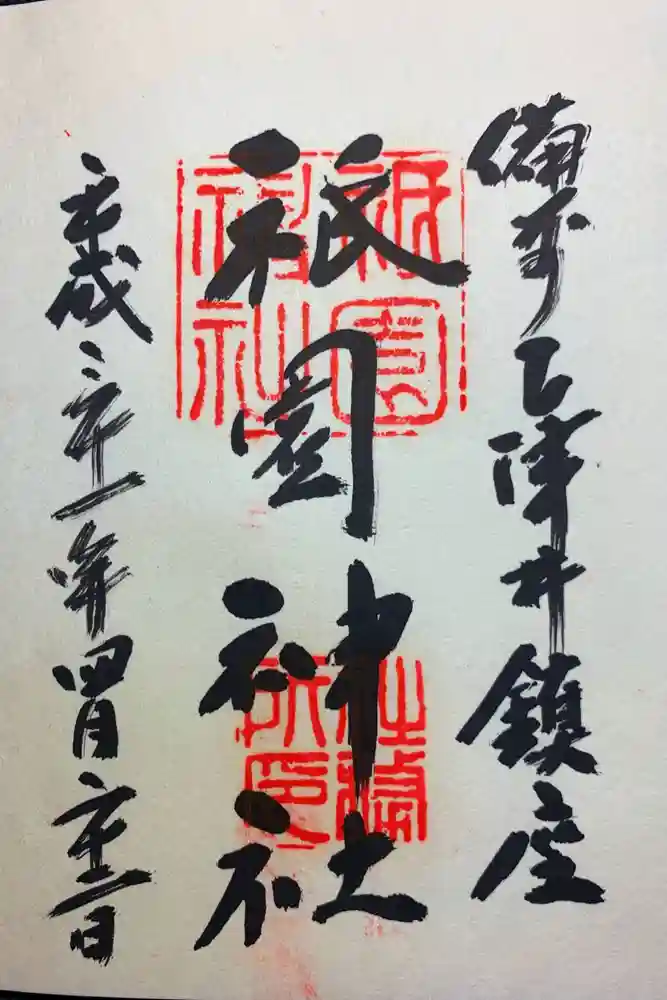 備前下津井鎮座
祇園神社
平成三十一年四月二十二日
祇園神社
社務所印